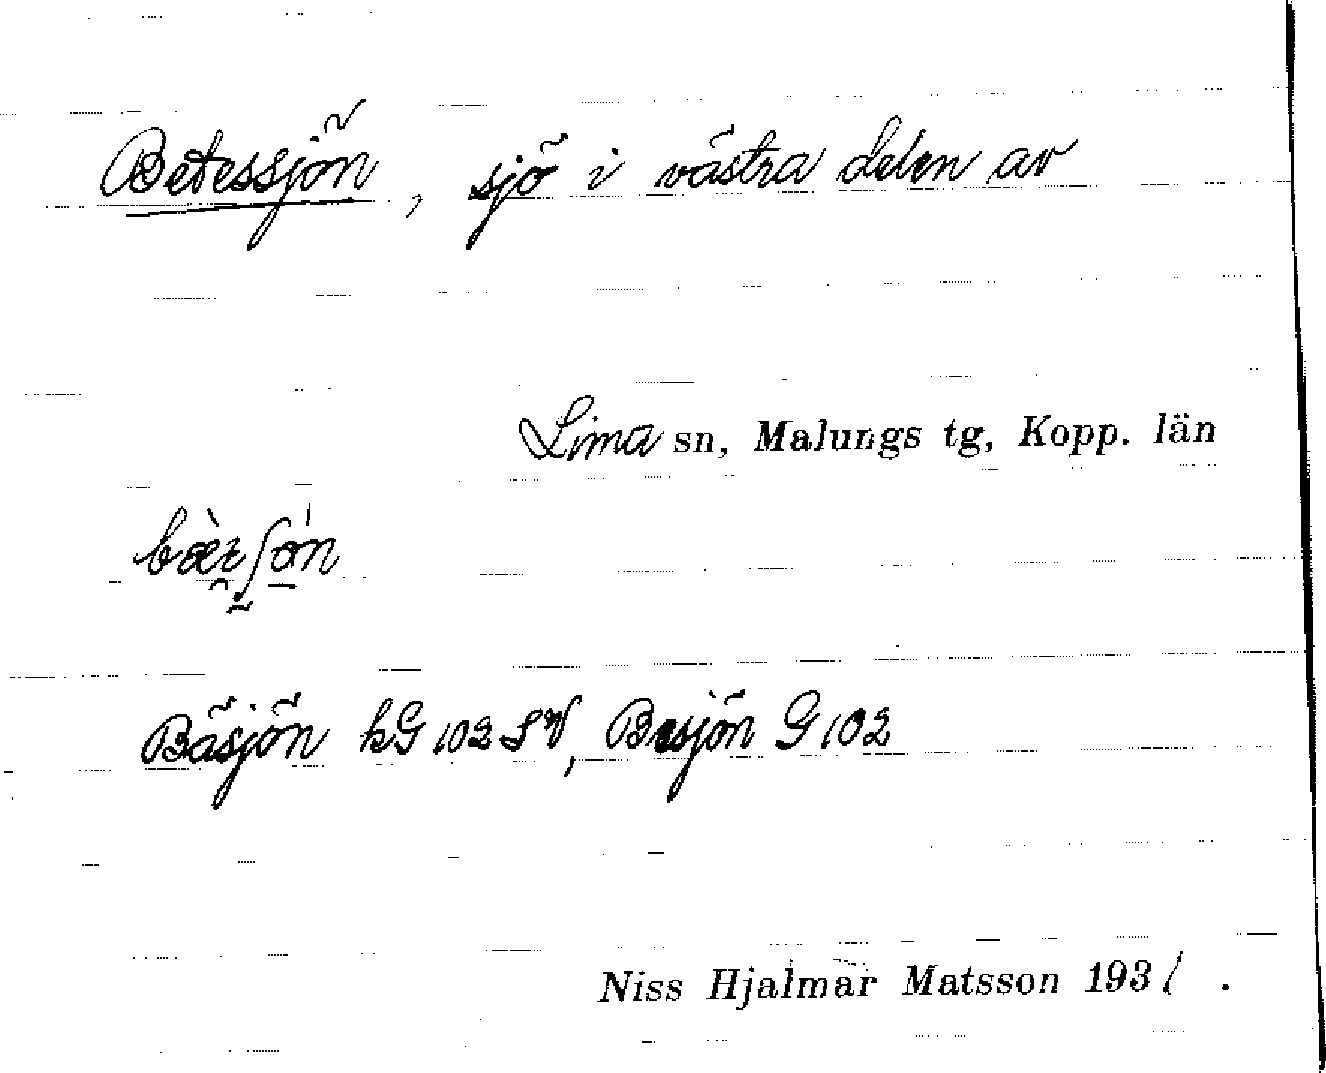 Betessjön, sjö i västra delen av
Lima sn, Malungs tg, Kopp. län
Bäsjön kG 102 SV, Besjön G 102
Niss Hjalmar Matsson 1931.